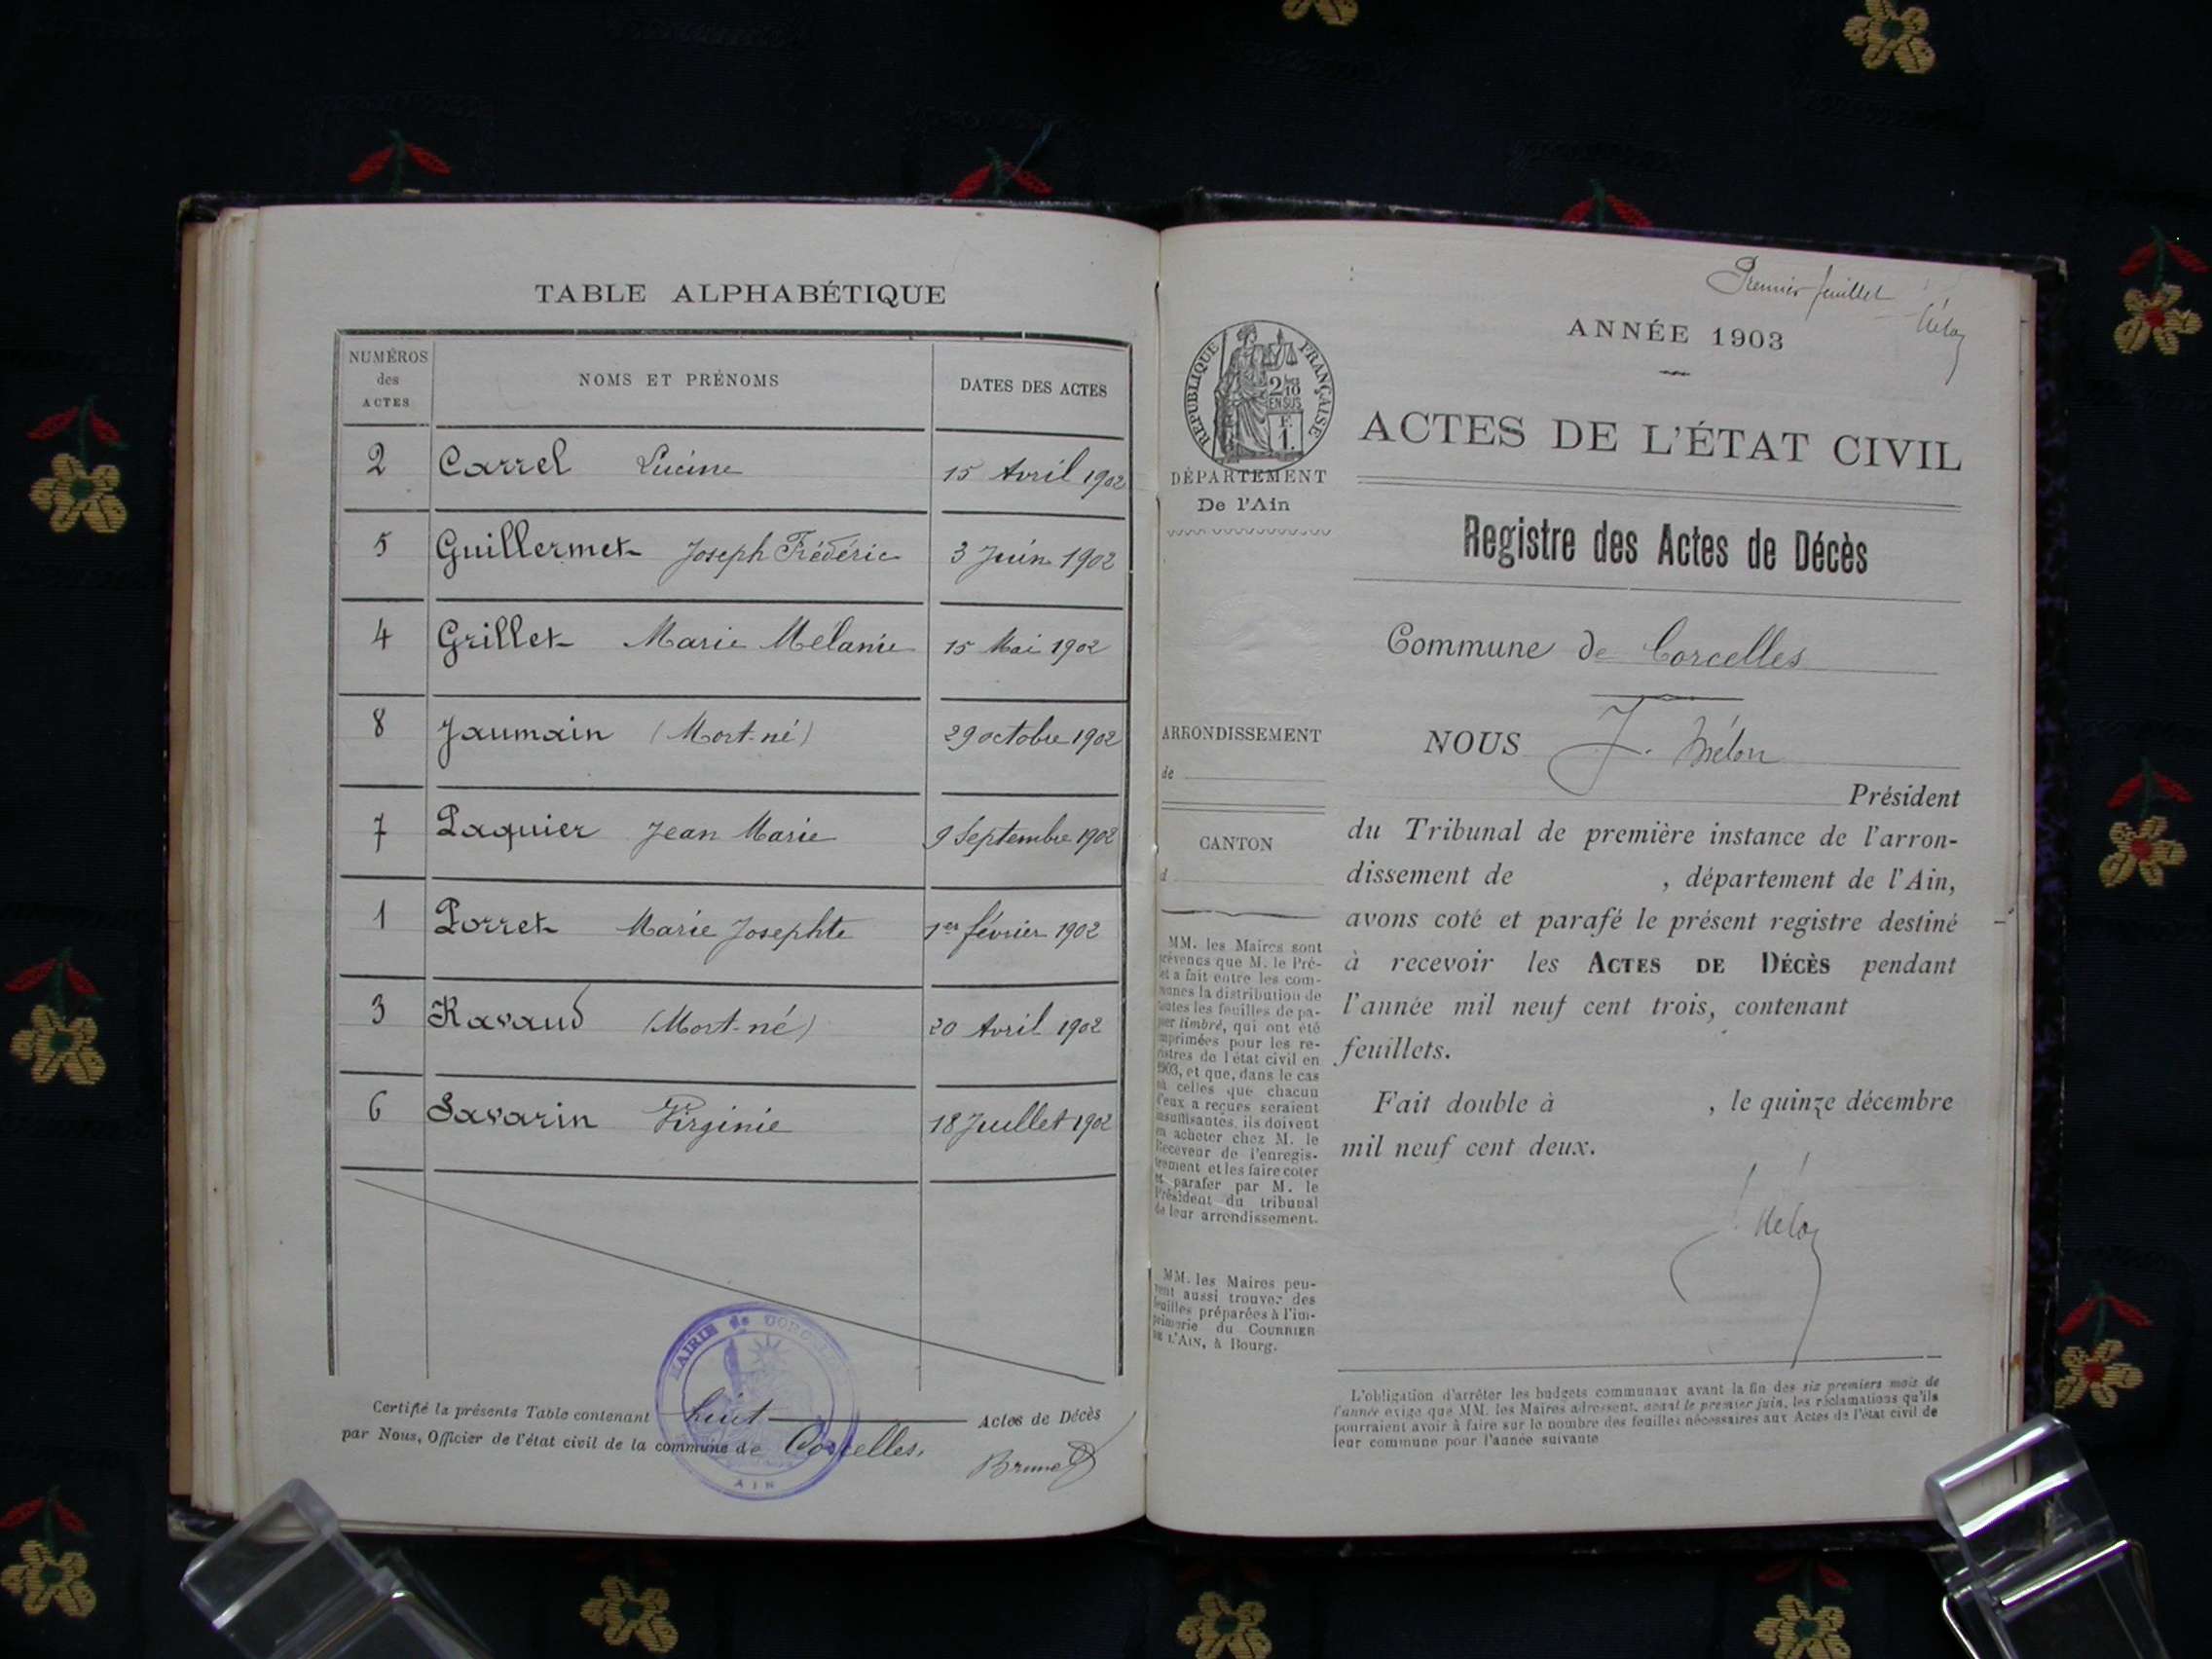 TABLE ALPHABÉTIQUE
NUMÉROS des ACTES NOMS ET PRÉNOMS DATES DES ACTES
2 Carrel Lucine 15 Avril 1902
5 Guillermet Joseph Frédéric 3 Juin 1902
4 Grillet Marie Mélanie 15 Mai 1902
8 Jaumain (Mort-né) 29 octobre 1902
7 Paquier Jean Marie 9 Septembre 1902
1 Porret Marie Josephte 1er février 1902
3 Ravaud (Mort-né) 20 Avril 1902
6 Savarin Virginie 18 Juillet 1902
Certifié la présente Table contenant huit Actes de Décès
par Nous, Officier de l'état civil de la commune de Corcelles.
Brunet
MAIRIE de CORCELLES
AIN
Premier feuillet
ANNÉE 1903
RÉPUBLIQUE FRANÇAISE
2/10
EN SUS
F.
1.
ACTES DE L'ÉTAT CIVIL
DÉPARTEMENT
De l'Ain
Registre des Actes de Décès
Commune de Corcelles
ARRONDISSEMENT
de
CANTON
d
MM. les Maires sont
prévenus que M. le Pré-
fet a fait entre les com-
munes la distribution de
toutes les feuilles de pa-
pier timbré, qui ont été
imprimées pour les re-
gistres de l'état civil en
1903, et que, dans le cas
où celles que chacun
d'eux a reçues seraient
insuffisantes, ils doivent
en acheter chez M. le
Receveur de l'enregis-
trement et les faire coter
et parafer par M. le
Président du tribunal
de leur arrondissement.
MM. les Maires peu-
vent aussi trouver des
feuilles préparées à l'im-
primerie du COURRIER
DE L'AIN, à Bourg.
NOUS J.
Président
du Tribunal de première instance de l'arron-
dissement de , département de l'Ain,
avons coté et parafé le présent registre destiné
à recevoir les ACTES DE DÉCÈS pendant
l'année mil neuf cent trois, contenant
feuillets.
Fait double à , le quinze décembre
mil neuf cent deux.
L'obligation d'arrêter les budgets communaux avant la fin des six premiers mois de
l'année exige que MM. les Maires adressent, avant le premier juin, les réclamations qu'ils
pourraient avoir à faire sur le nombre des feuilles nécessaires aux Actes de l'état civil de
leur commune pour l'année suivante